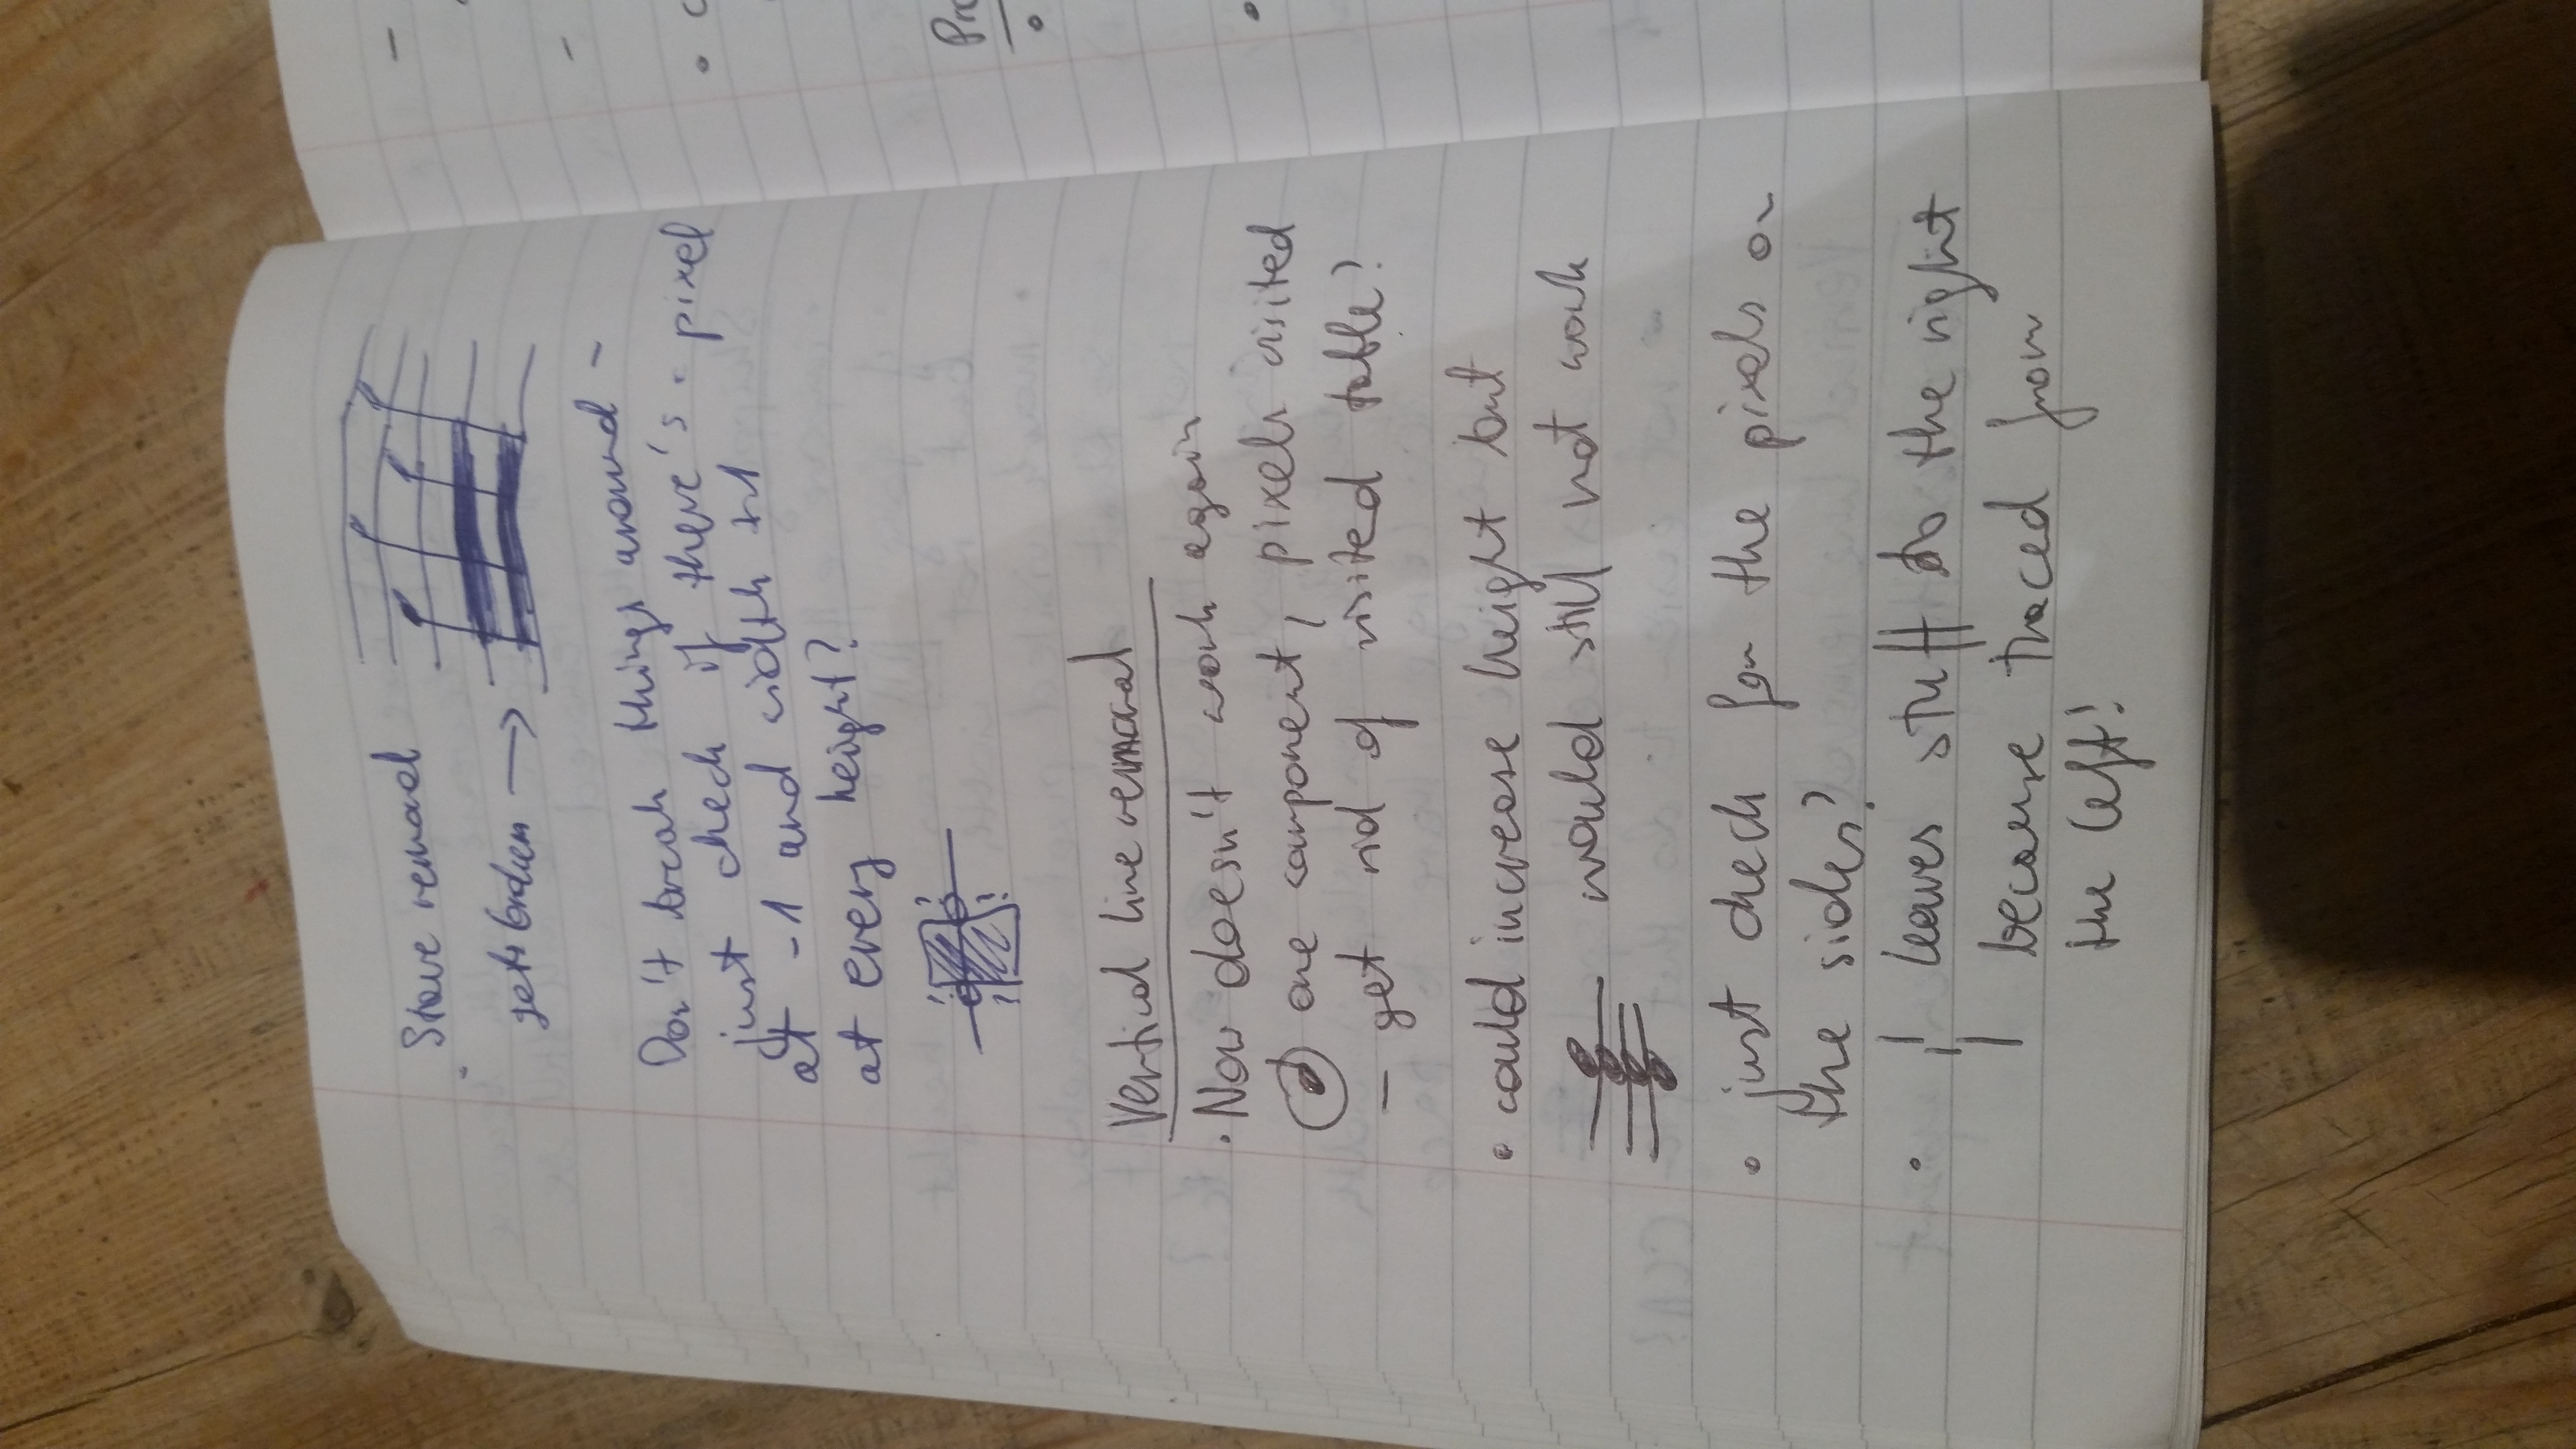 Stave removal
gets broken →
Don't break things around -
just check if there's . pixel
at -1 and width +1
at every height?
! ?
? !
Vertical line removal
• Now doesn't work again
one component, pixels visited
- get rid of visited table?
• could increase height but
would still not work
• just check for the pixels on
the sides?
• leaves stuff to the right
because traced from
the left!
Pro